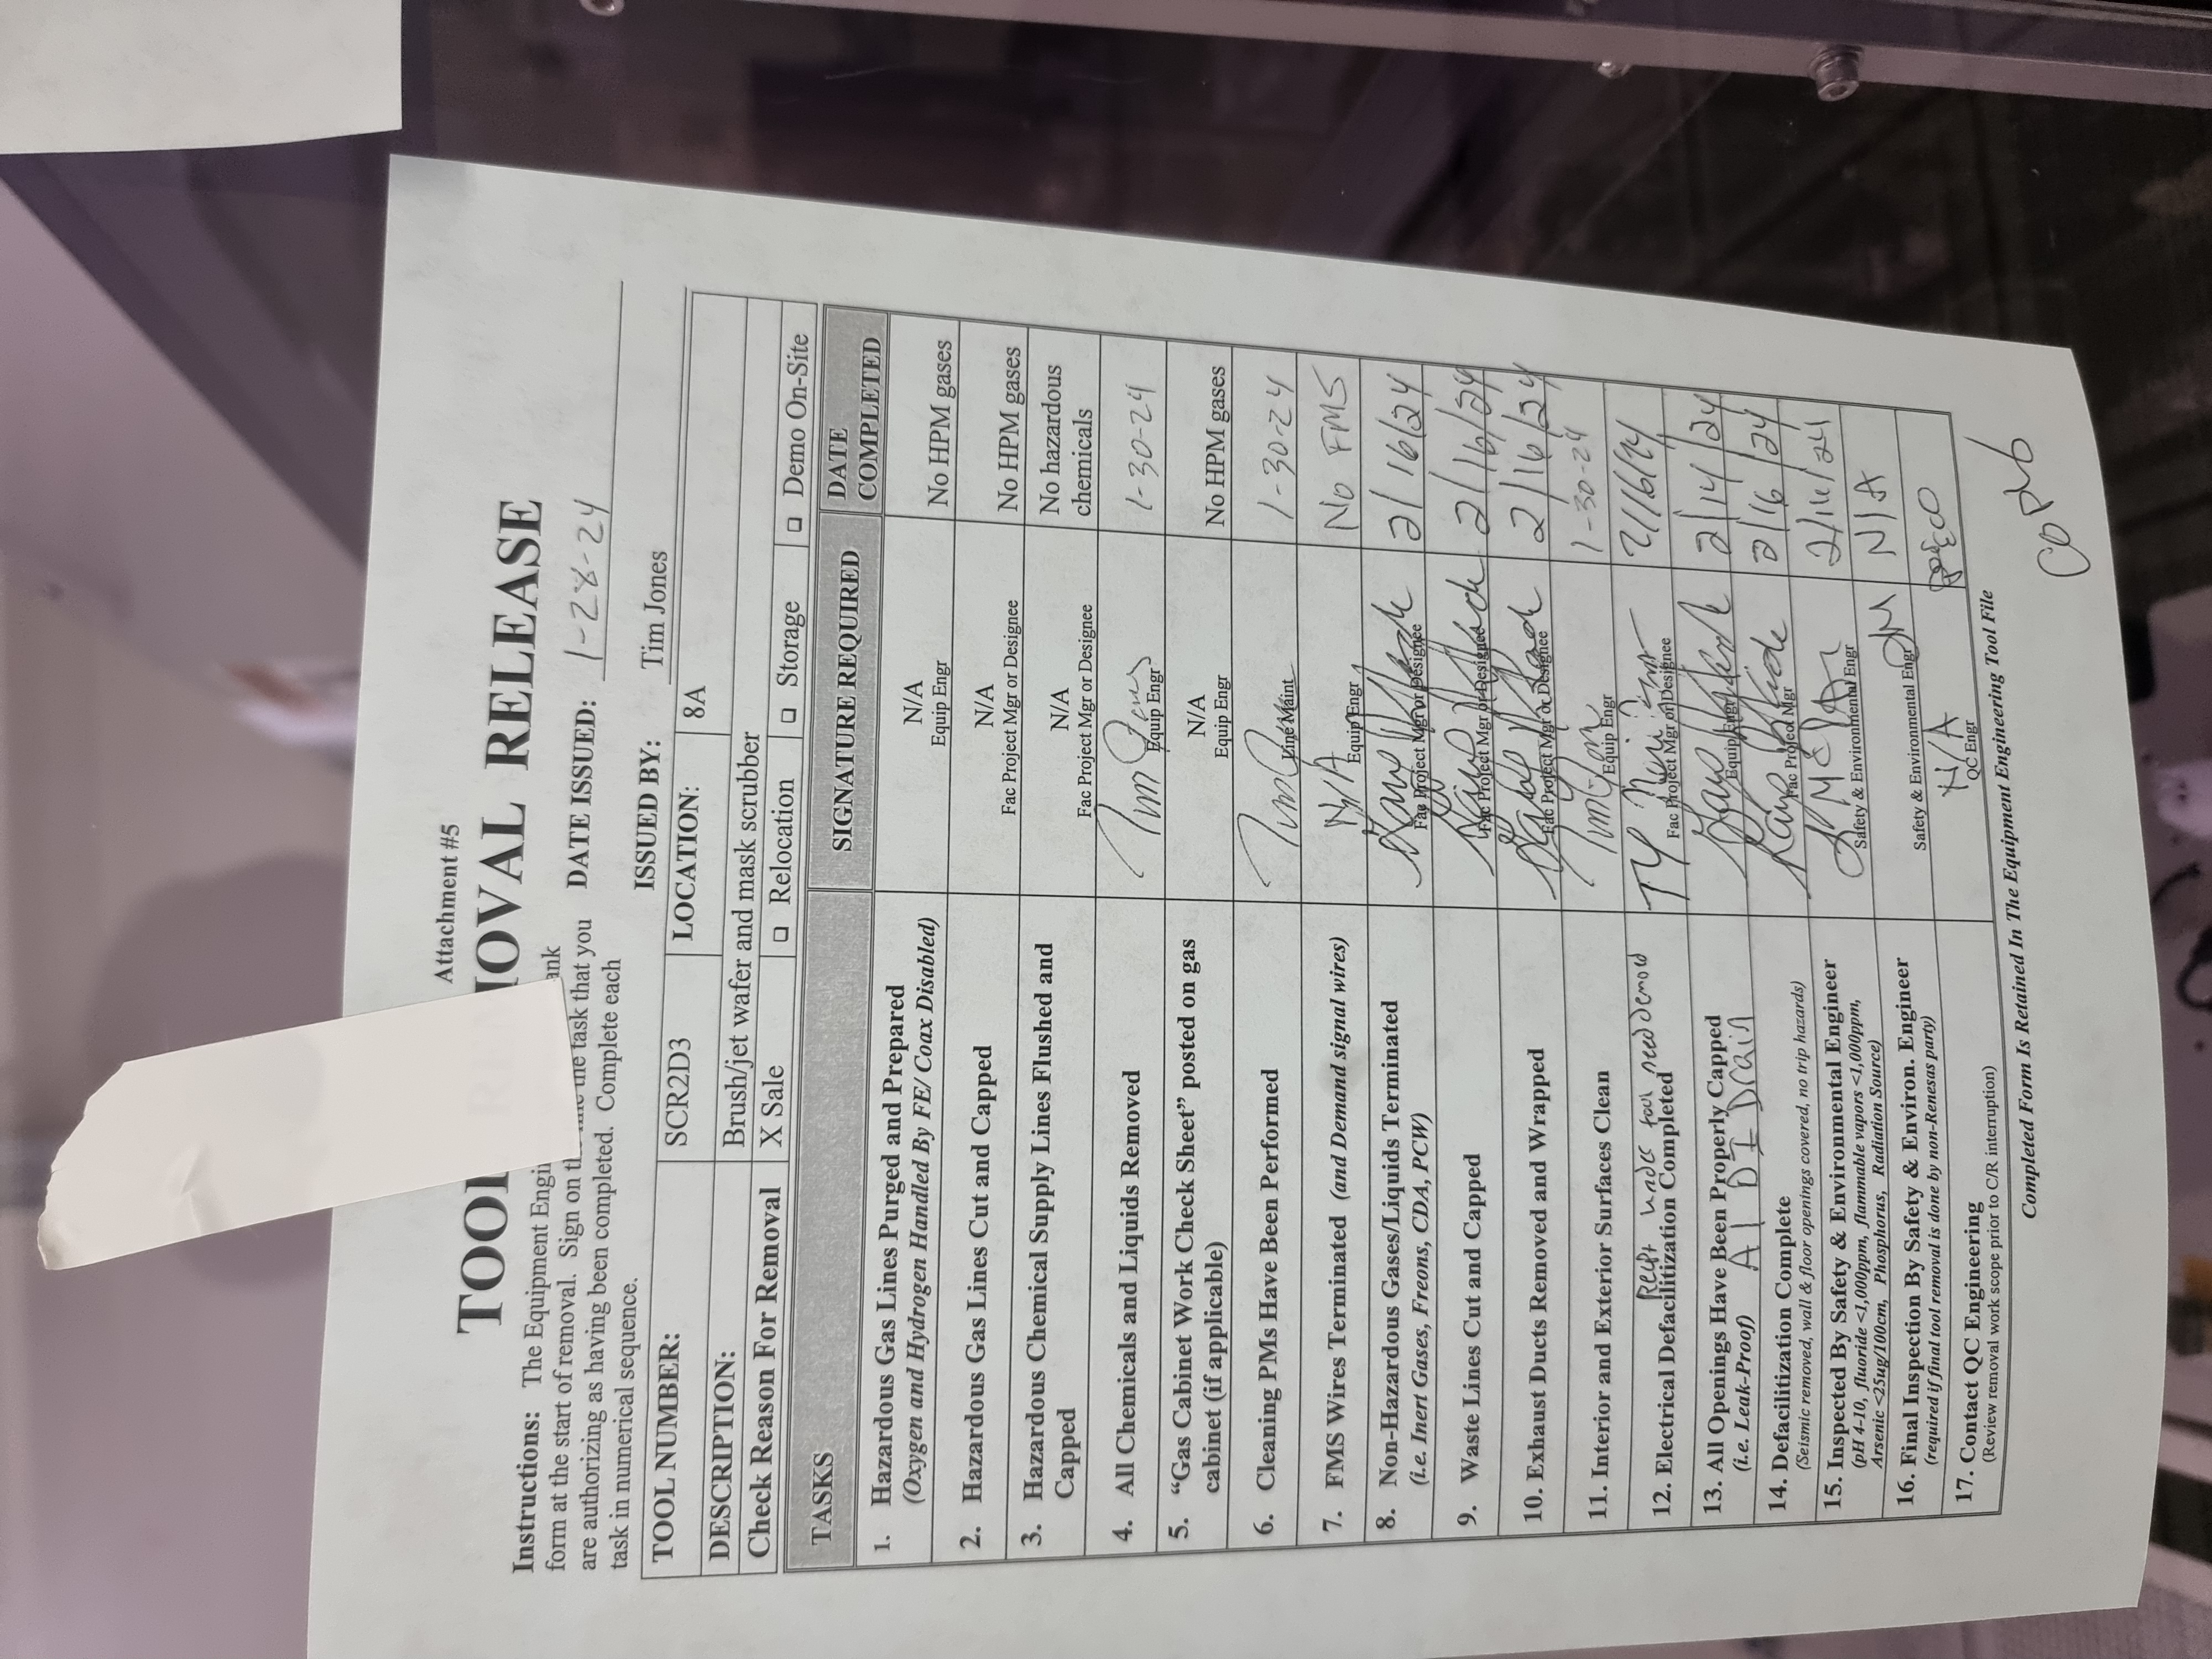 Attachment #5
TOOL R MOVAL RELEASE
Instructions: The Equipment Engi ank DATE ISSUED: 1-28-24
form at the start of removal. Sign on the line the task that you
are authorizing as having been completed. Complete each
task in numerical sequence.
ISSUED BY: Tim Jones
TOOL NUMBER: SCR2D3 LOCATION: 8A
DESCRIPTION: Brush/jet wafer and mask scrubber
Check Reason For Removal X Sale □ Relocation □ Storage □ Demo On-Site
TASKS SIGNATURE REQUIRED DATE COMPLETED
1. Hazardous Gas Lines Purged and Prepared N/A No HPM gases
(Oxygen and Hydrogen Handled By FE/ Coax Disabled) Equip Engr
2. Hazardous Gas Lines Cut and Capped N/A No HPM gases
Fac Project Mgr or Designee
3. Hazardous Chemical Supply Lines Flushed and N/A No hazardous
Capped Fac Project Mgr or Designee chemicals
4. All Chemicals and Liquids Removed Tim Jones 1-30-24
Equip Engr
5. "Gas Cabinet Work Check Sheet" posted on gas N/A No HPM gases
cabinet (if applicable) Equip Engr
6. Cleaning PMs Have Been Performed 1-30-24
Line Maint
7. FMS Wires Terminated (and Demand signal wires) N/A No FMS
Equip Engr
8. Non-Hazardous Gases/Liquids Terminated 2/16/24
(i.e. Inert Gases, Freons, CDA, PCW) Fac Project Mgr or Designee
9. Waste Lines Cut and Capped 2/16/24
Fac Project Mgr or Designee
10. Exhaust Ducts Removed and Wrapped 2/16/24
Fac Project Mgr or Designee
11. Interior and Exterior Surfaces Clean 1-30-24
Equip Engr
Rcpt under tool need demo'd
12. Electrical Defacilitization Completed 2/16/24
Fac Project Mgr or Designee
13. All Openings Have Been Properly Capped 2/14/24
(i.e. Leak-Proof) A1 DI Drain Equip Engr
14. Defacilitization Complete 2/16/24
(Seismic removed, wall & floor openings covered, no trip hazards) Fac Project Mgr
15. Inspected By Safety & Environmental Engineer
(pH 4-10, fluoride <1,000ppm, flammable vapors <1,000ppm,
Arsenic <25ug/100cm, Phosphorus, Radiation Source) Safety & Environmental Engr
16. Final Inspection By Safety & Environ. Engineer N/A
(required if final tool removal is done by non-Renesas party) Safety & Environmental Engr
17. Contact QC Engineering N/A
(Review removal work scope prior to C/R interruption) QC Engr
Completed Form Is Retained In The Equipment Engineering Tool File